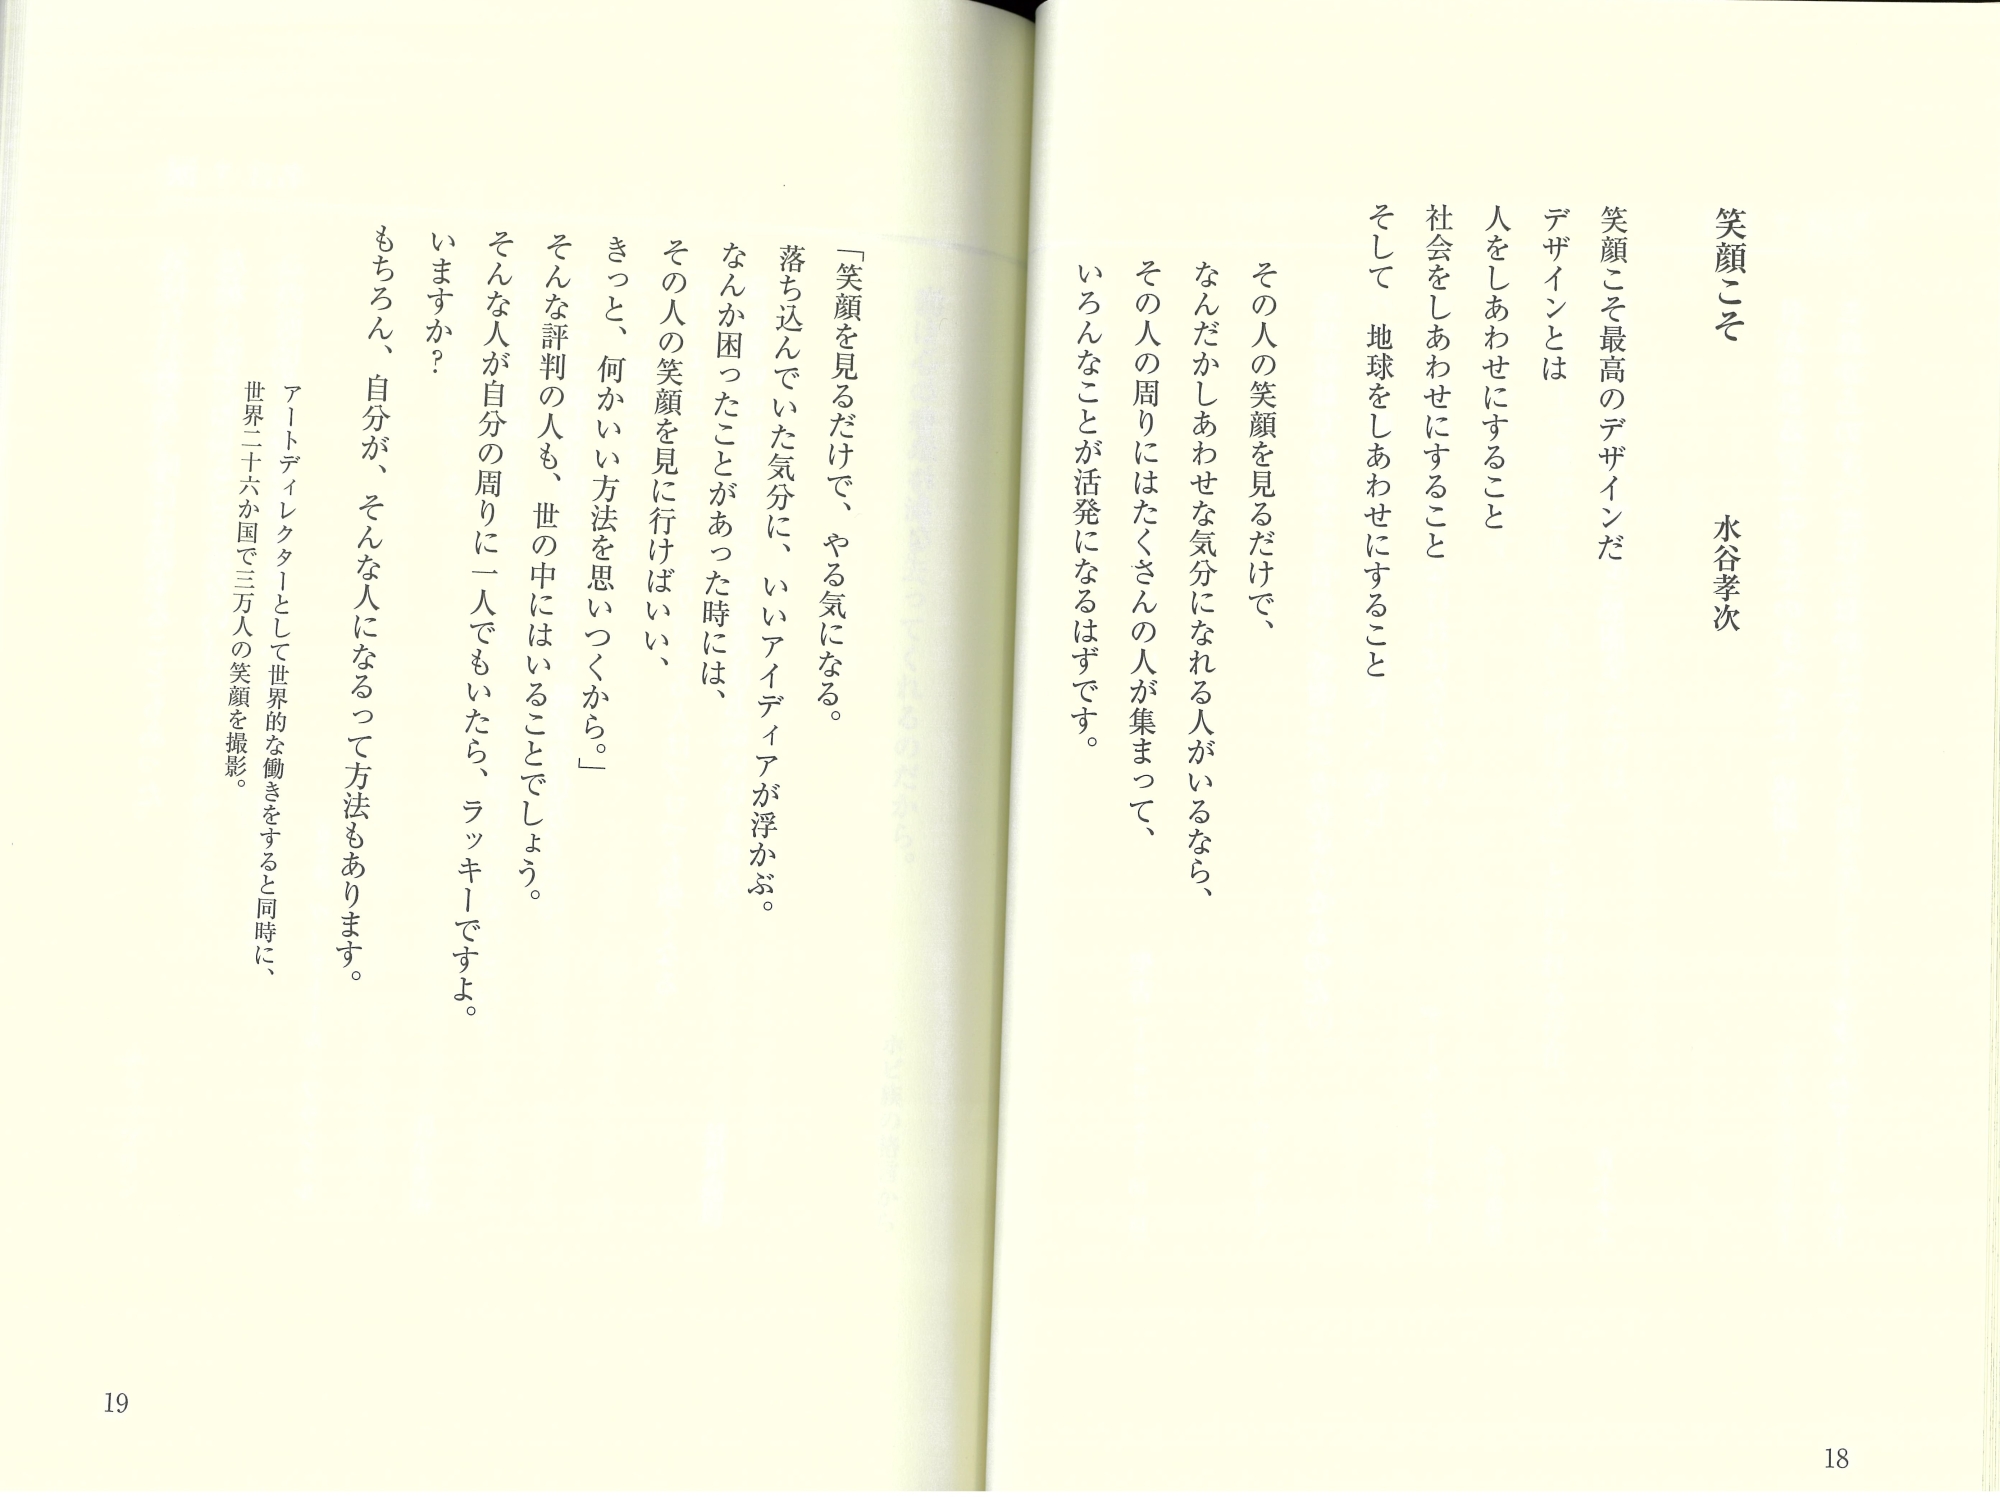 笑顔こそ　水谷孝次
笑顔こそ最高のデザインだ
デザインとは
人をしあわせにすること
社会をしあわせにすること
そして　地球をしあわせにすること
その人の笑顔を見るだけで、
なんだかしあわせな気分になれる人がいるなら、
その人の周りにはたくさんの人が集まって、
いろんなことが活発になるはずです。
18
「笑顔を見るだけで、やる気になる。
落ち込んでいた気分に、いいアイディアが浮かぶ。
なんか困ったことがあった時には、
その人の笑顔を見に行けばいい、
きっと、何かいい方法を思いつくから。」
そんな評判の人も、世の中にはいることでしょう。
そんな人が自分の周りに一人でもいたら、ラッキーですよ。
いますか?
もちろん、自分が、そんな人になるって方法もあります。
アートディレクターとして世界的な働きをすると同時に、
世界二十六か国で三万人の笑顔を撮影。
19